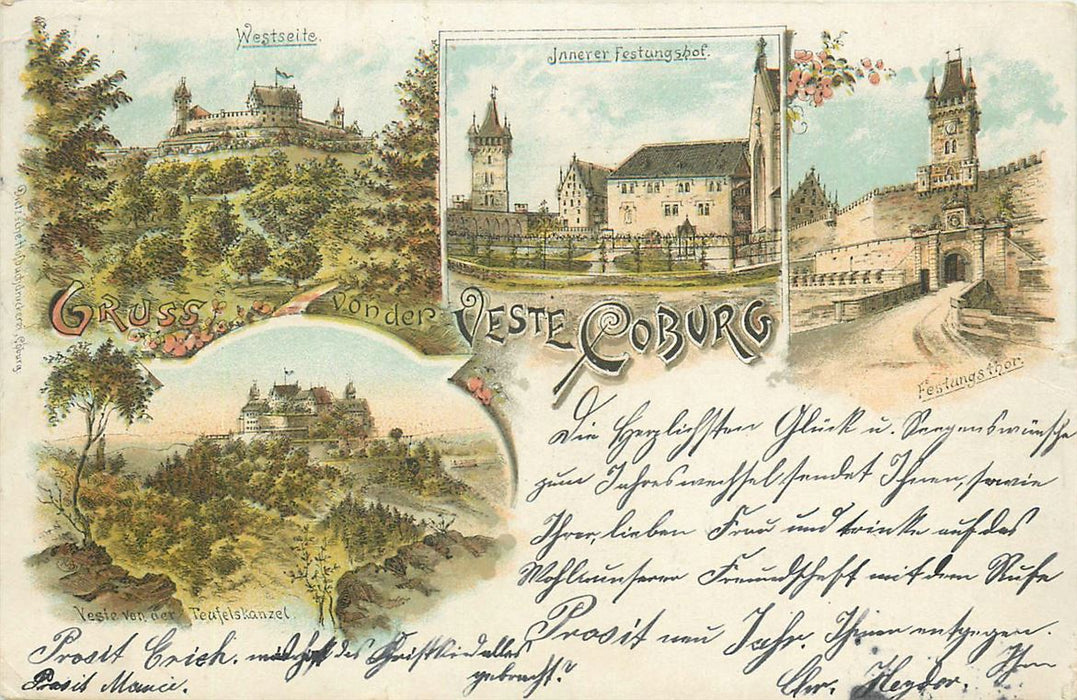 Westseite.
Innerer Festungshof.
Gruss von der Veste Coburg
Festungsthor.
Veste von der Teufelskanzel.
Die herzlichsten Glück u. Seegenswünsche
zum Jahreswechsel sendet Ihnen, sowie
Ihrer, lieben Frau und trinke auf das
Wohl unserer Freundschaft mit dem Rufe
Prosit neu Jahr. Ihnen entgegen.
Ihr
Chr. Heyder.
Prosit Erich. das Christkind alles
gebracht?
Prosit